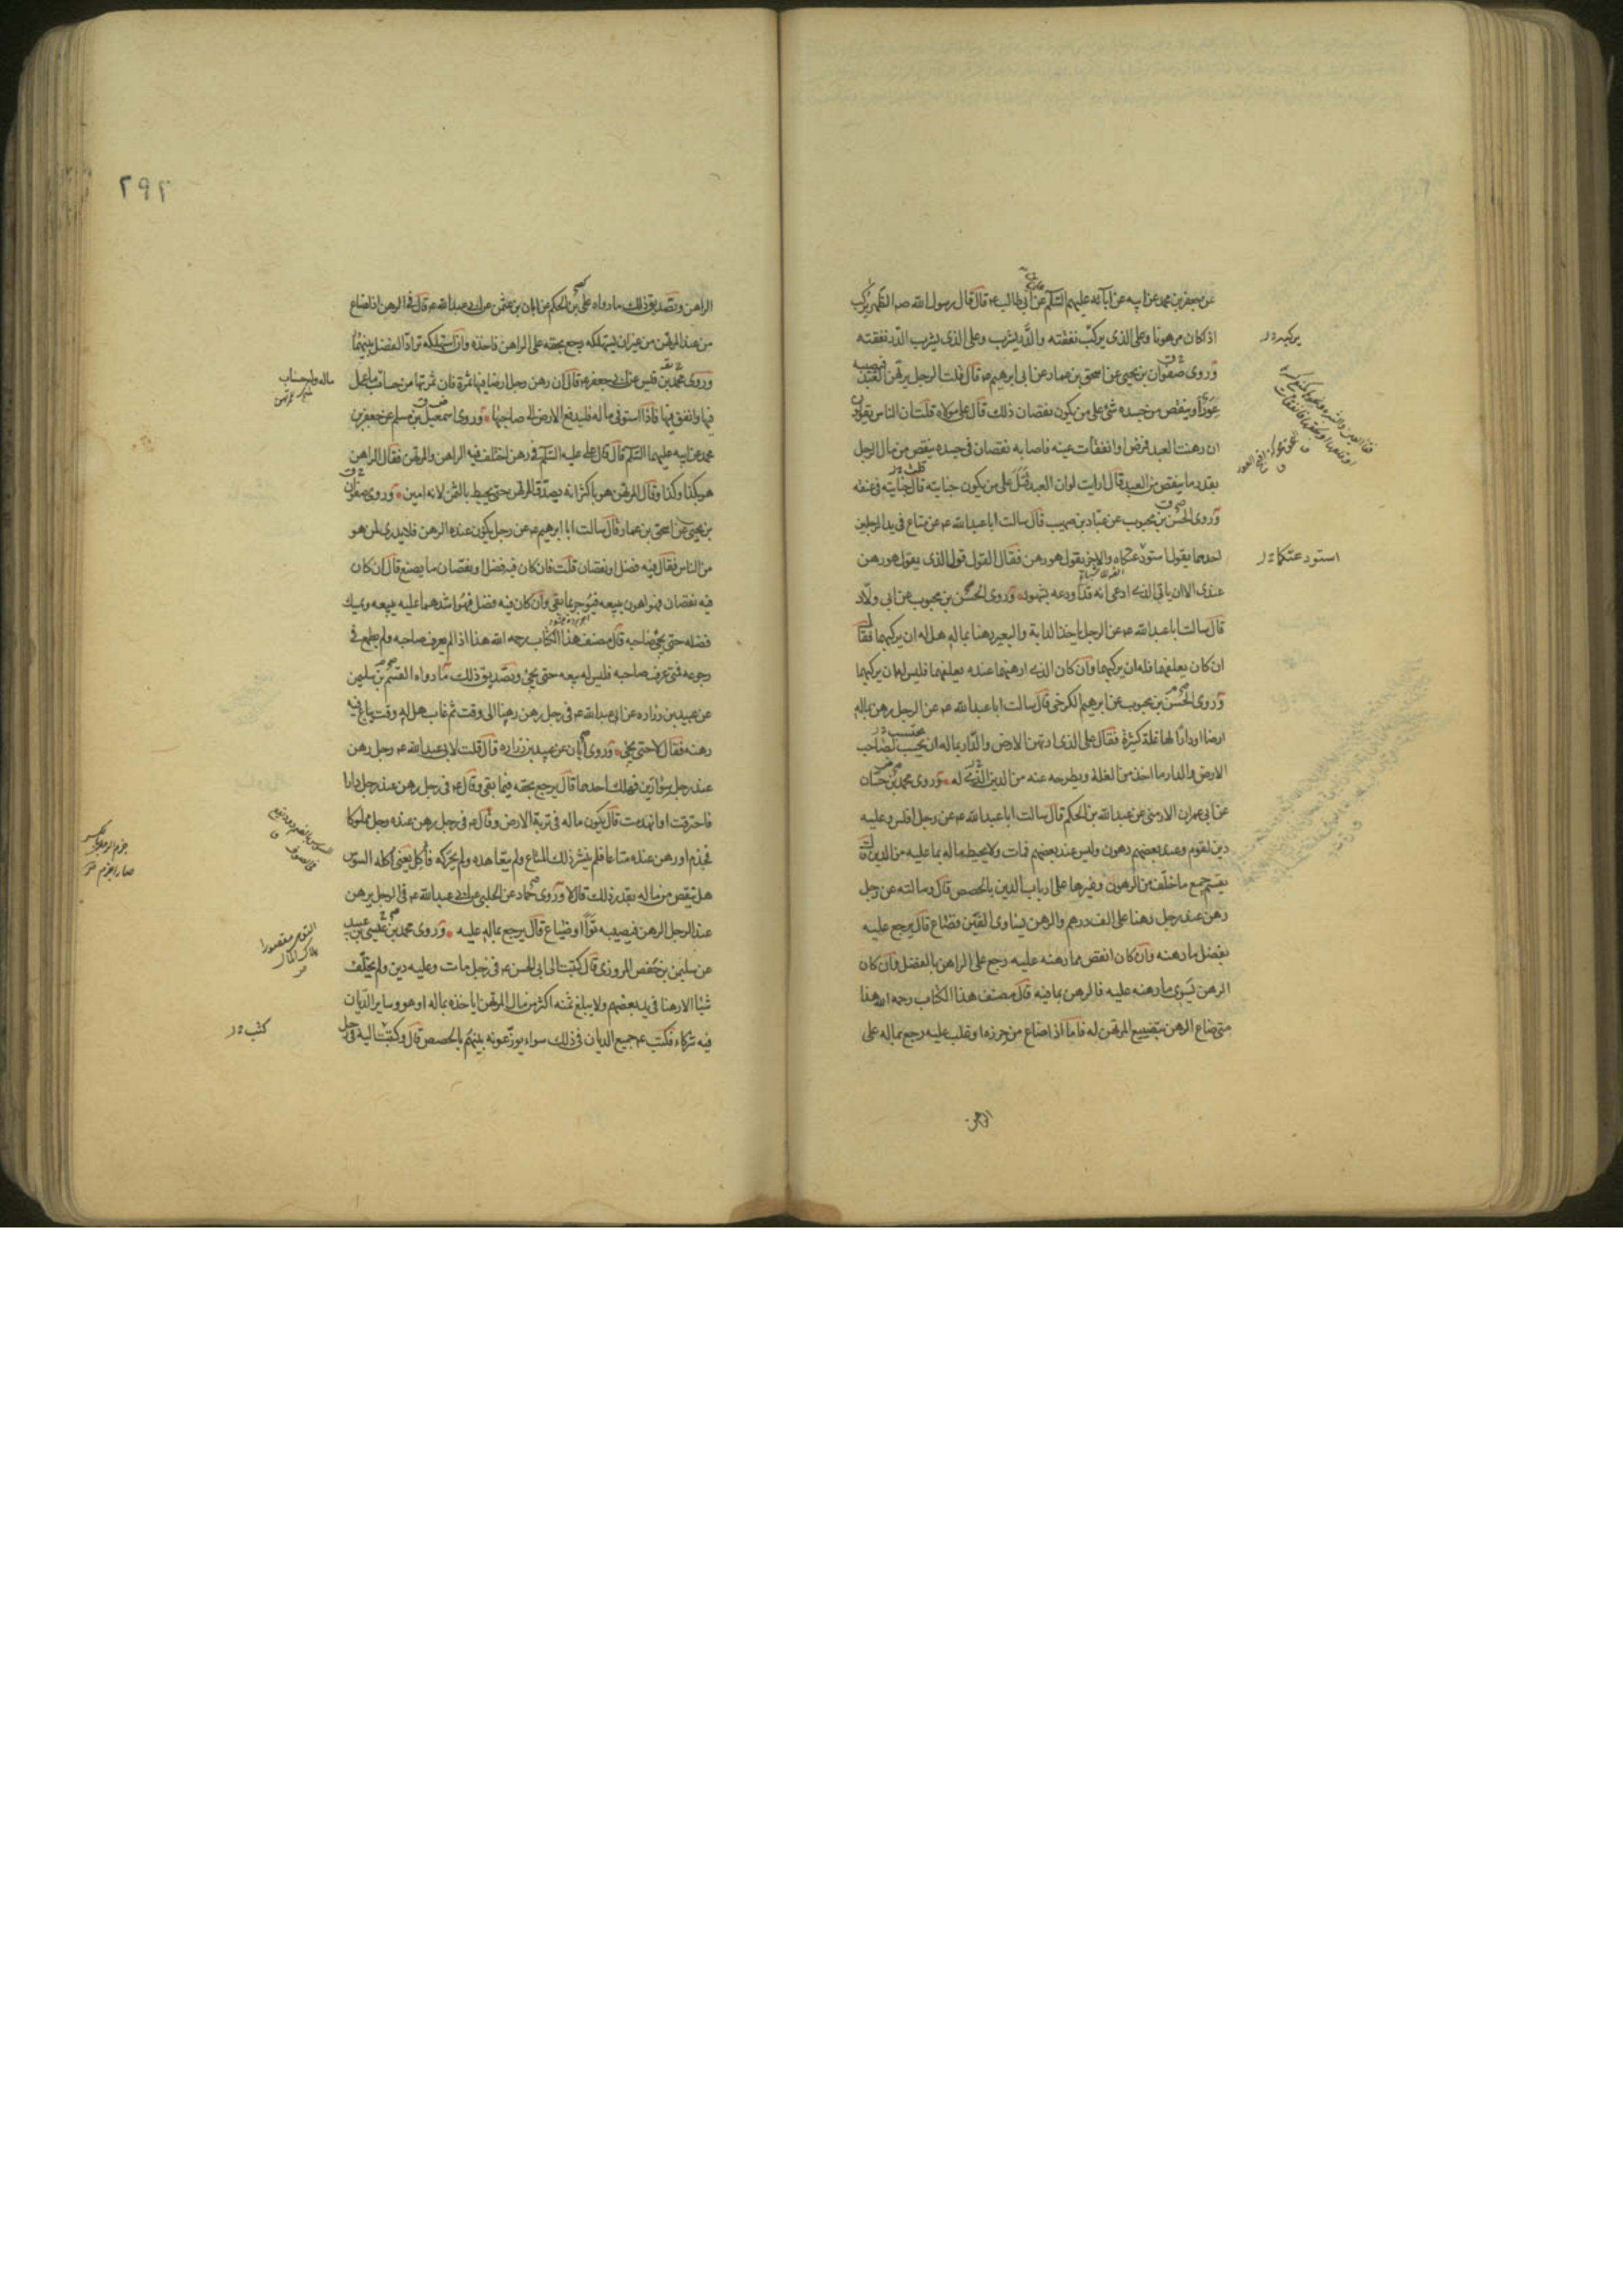 عن جعفر بن محمد عن ابيه عن آبائه عليهم السلم عن علي بن ابي طالب ع قال قال رسول الله ص الظهر يركب
اذا كان مرهونا وعلى الذى يركب نفقته والدر يشرب وعلى الذى يشرب الدر نفقته
وروى صفوان بن يحيى عن اسحق بن عمار عن ابى ابرهيم ع قال قلت الرجل يرتهن العبد فيصيبه
عور او ينقص من جسده شئ على من يكون نقصان ذلك قال على مولاه قلت ان الناس يقولون
ان رهنت العبد فمرض او انفقأت عينه فاصابه نقصان فى جسده ينقص من مال الرجل
بقدر ما ينقص من العبد قال ارايت لو ان العبد قتل على من يكون جنايته قال جنايته فى عنقه
وروى الحسن بن محبوب عن عباد بن صهيب قال سالت ابا عبد الله ع عن متاع فى يد الرجلين
احدهما يقول استودعتكاه والاخر يقول هو رهن فقال القول قول الذى يقول هو رهن
عندى الا ان ياتى الذى ادعى انه قد اودعه بشهود وروى الحسن بن محبوب عن ابى ولاد
قال سالت ابا عبد الله ع عن الرجل ياخذ الدابة والبعير رهنا بماله هل له ان يركبهما فقال
ان كان يعلفهما فله ان يركبهما وان كان الذى ارهنهما عنده يعلفهما فليس له ان يركبهما
وروى الحسن بن محبوب عن ابرهيم الكرخى قال سالت ابا عبد الله ع عن الرجل رهن بماله
ارضا او دارا لها غلة كثيرة فقال على الذى ارتهن الارض والدار بماله ان يحسب لصاحب
الارض والدار ما اخذ من الغلة ويطرحه عنه من الدين الذى له وروى محمد بن حسان
عن ابى عمران الارمنى عن عبد الله بن الحكم قال سالت ابا عبد الله ع عن رجل افلس وعليه
دين لقوم وعند بعضهم رهون وليس عند بعضهم فمات ولا يحيط ماله بما عليه من الدين قال
يقسم جميع ما خلف من الرهون وغيرها على ارباب الدين بالحصص قال وسالته عن رجل
رهن عند رجل رهنا على الف درهم والرهن يساوى الفين فضاع قال يرجع عليه
بفضل ما رهنه وان كان انقص مما رهنه عليه رجع على الراهن بالفضل وان كان
الرهن يسوى ما رهنه عليه فالرهن بما فيه قال مصنف هذا الكتاب رحمه الله هذا
متى ضاع الرهن بتضييع المرتهن له فاما اذا ضاع من حرزه او غلب عليه رجع بماله على
الراهن
يركبه
استودعتكاه
٢٩٢
الراهن وتصديق ذلك ما رواه على بن الحكم عن ابان بن عثمن عن ابى عبد الله ع قال فى الرهن اذا ضاع
من عند المرتهن من غير ان يستهلكه رجع بحقه على الراهن فاخذه وان استهلكه ترادا الفضل بينهما
وروى محمد بن قيس عن ابى جعفر ع قال ان رهن رجل ارضا فيها ثمرة فان ثمرتها من حساب ما عمل
فيها وانفق فيها فاذا استوفى ماله فليدفع الارض الى صاحبها وروى اسمعيل بن مسلم عن جعفر بن
محمد عن ابيه عليهما السلم قال قال على عليه السلم فى رهن اختلف فيه الراهن والمرتهن فقال الراهن
هو بكذا وكذا وقال المرتهن هو باكثر انه يصدق المرتهن حتى يحيط بالثمن لانه امين وروى صفوان
بن يحيى عن اسحق بن عمار قال سالت ابا ابرهيم ع عن رجل يكون عنده الرهن فلا يدرى لمن هو
من الناس فقال فيه فضل او نقصان قلت فان كان فيه فضل او نقصان ما يصنع قال ان كان
فيه نقصان فهو اهون يبيعه فيوجر بما بقى وان كان فيه فضل فهو اشدهما عليه يبيعه ويمسك
فضله حتى يجئ صاحبه قال مصنف هذا الكتاب رحمه الله هذا اذا لم يعرف صاحبه ولم يطمع فى
رجوعه فمتى عرف صاحبه فليس له بيعه حتى يجئ وتصديق ذلك ما رواه القسم بن سليمن
عن عبيد بن زرارة عن ابى عبد الله ع فى رجل رهن رهنا الى وقت ثم غاب هل له وقت يباع فيه
رهنه فقال لا حتى يجئ وروى ابان عن عبيد بن زراره قال قلت لابى عبد الله ع رجل رهن
عند رجل سوارين فهلك احدهما قال يرجع بحقه فيما بقى وقال ع فى رجل رهن عند رجل دارا
فاحترقت او انهدمت قال يكون ماله فى تربة الارض وقال ع فى رجل رهن عنده رجل مملوكا
فجذم او رهن عنده متاعا فلم ينشر ذلك المتاع ولم يتعاهده ولم يحركه فأكل يعنى اكله السوس
هل ينقص من ماله بقدر ذلك قال لا وروى حماد عن الحلبى عن ابى عبد الله ع فى الرجل يرهن
عند الرجل الرهن فيصيبه توا او ضياع قال يرجع بماله عليه وروى محمد بن عيسى بن عبيد
عن سليمن بن حفص المروزى قال كتبت الى ابى الحسن ع فى رجل مات وعليه دين ولم يخلف
شيئا الا رهنا فى يد بعضهم ولا يبلغ ثمنه اكثر من مال المرتهن اياخذه بماله او هو وساير الديان
فيه شركاء فكتب ع جميع الديان فى ذلك سواء يوزعونه بينهم بالحصص قال وكتبت اليه فى رجل